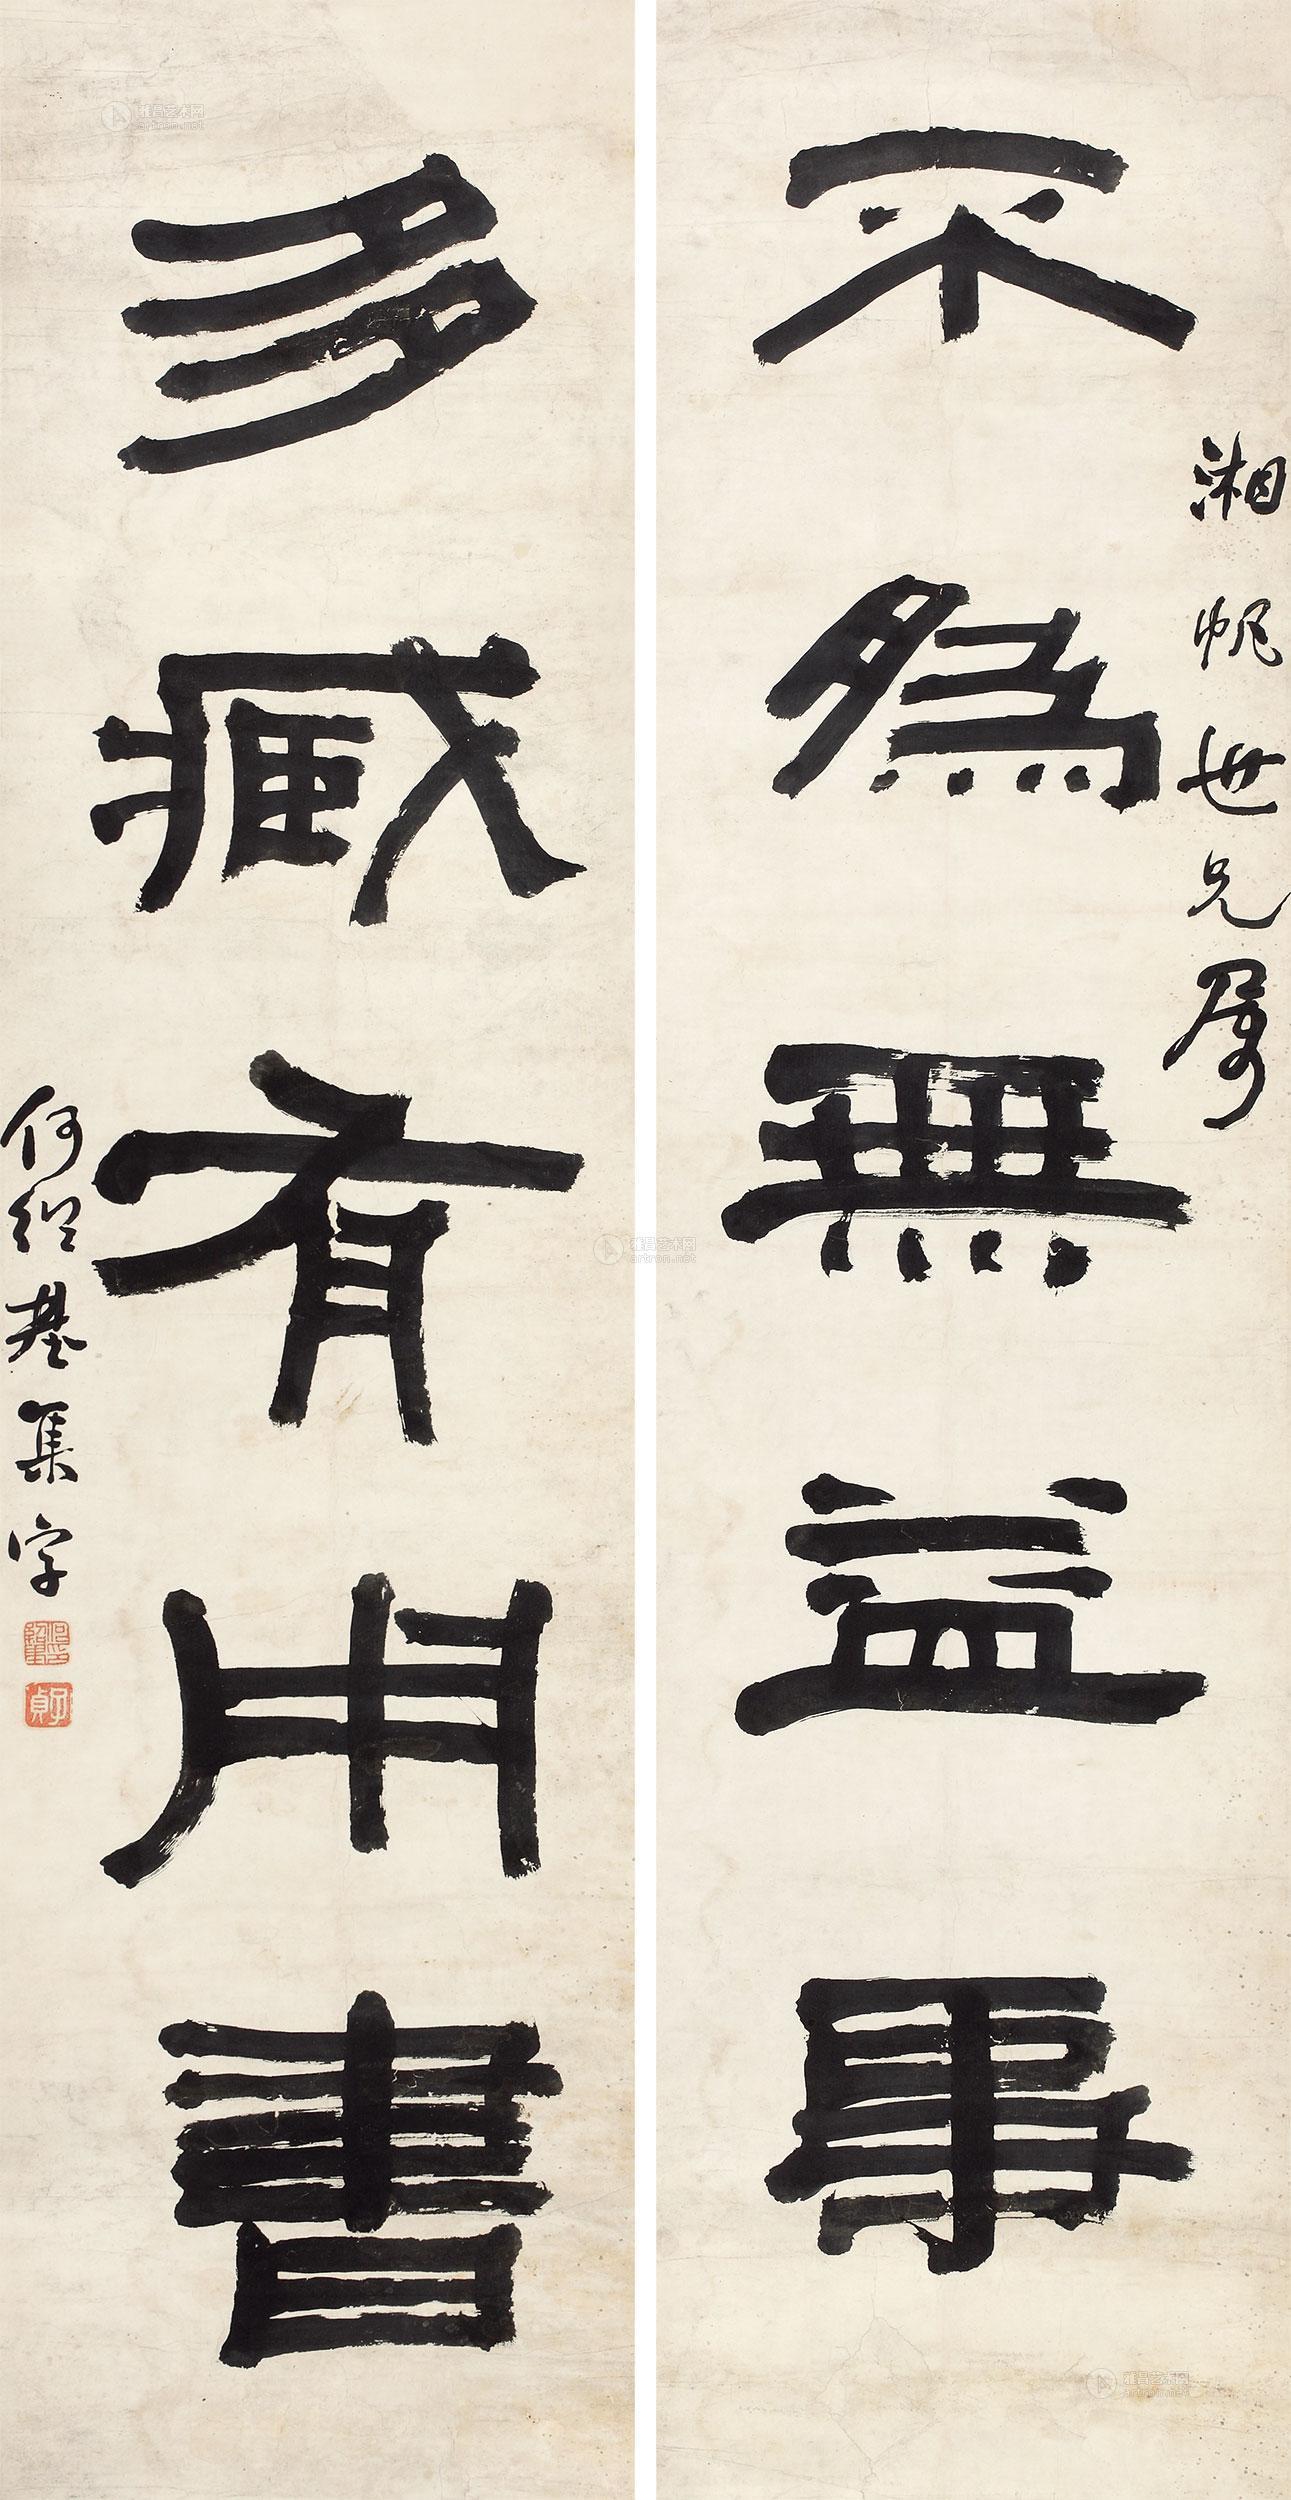 湘帆世兄属
不為無益事
多臧有用書
何紹基集字
子貞
雅昌艺术网
artron.net
雅昌艺术网
artron.net
雅昌艺术网
artron.net